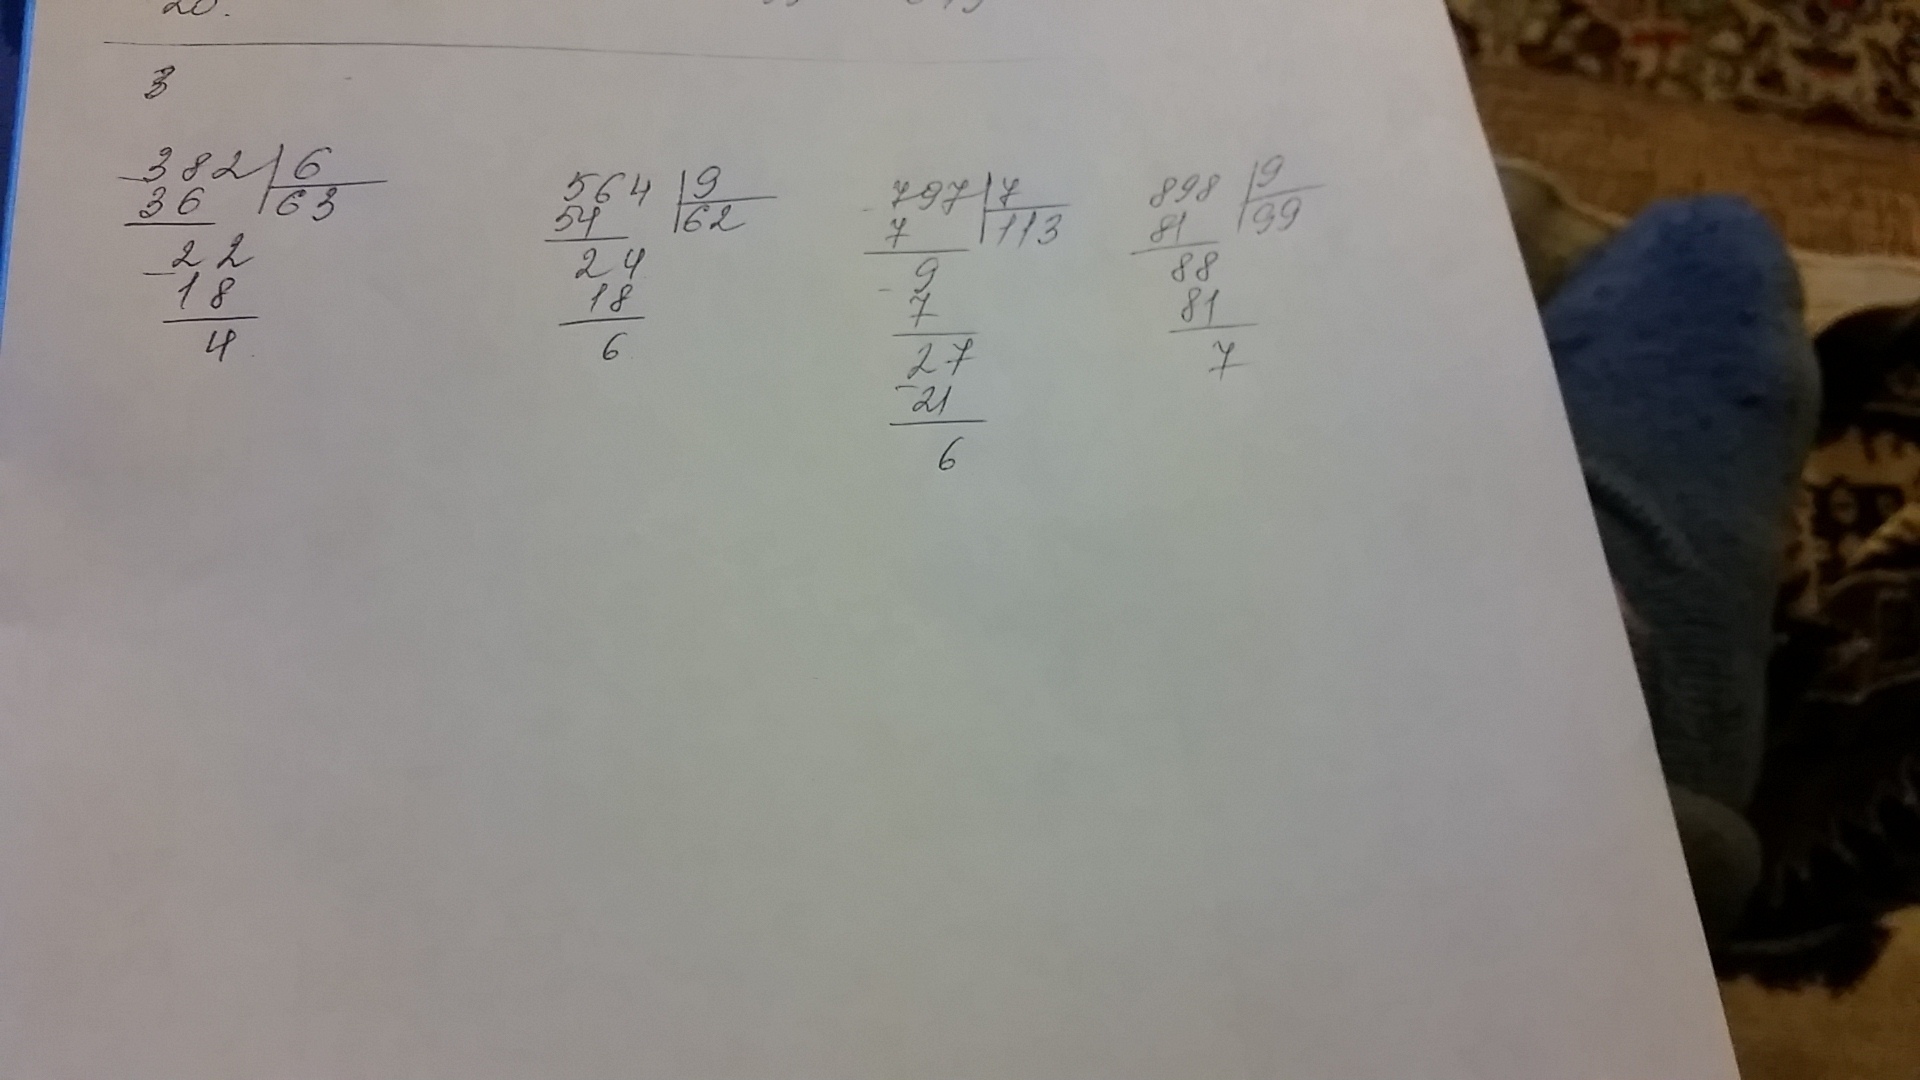 20.
3
382 6
36 63
22
18
4
564 9
54 62
24
18
6
797 7
7 113
9
7
27
21
6
898 9
81 99
88
81
7